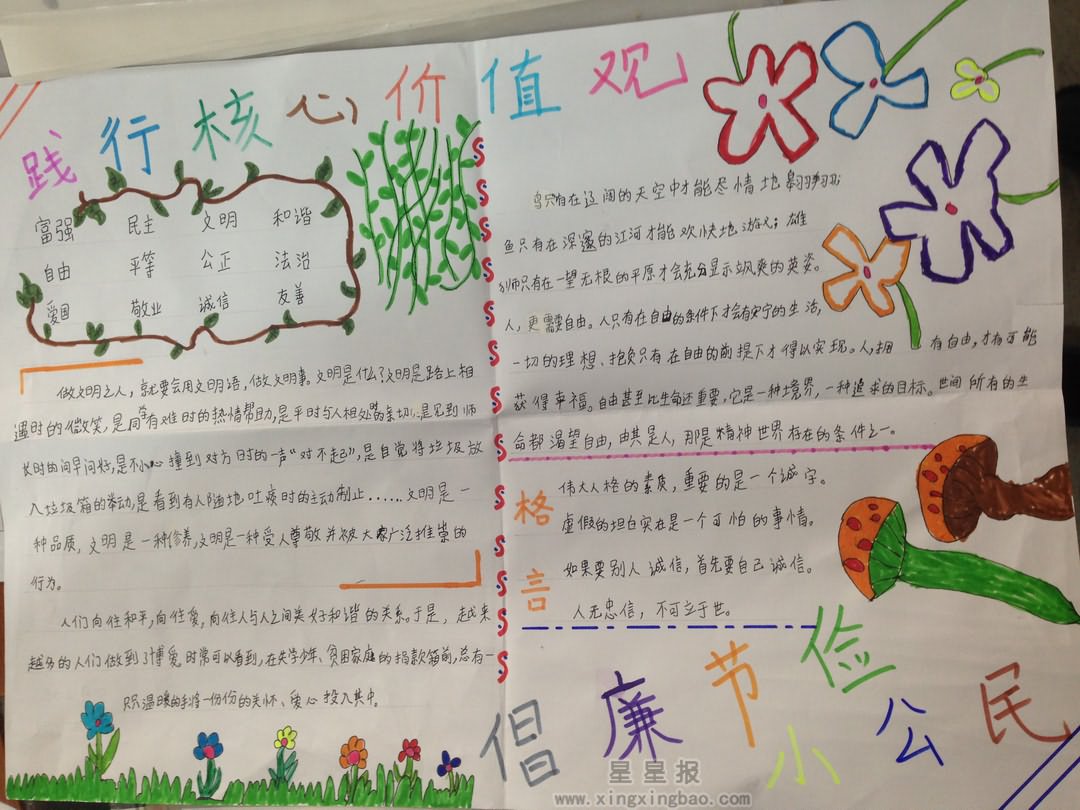 践行核心价值观
富强 民主 文明 和谐
自由 平等 公正 法治
爱国 敬业 诚信 友善
做文明之人,就要会用文明语,做文明事。文明是什么?文明是路上相
遇时的微笑,是同学有难时的热情帮助,是平时与人相处的亲切,是见到师
长时的问早问好,是不小心撞到对方时的一声“对不起”,是自觉将垃圾放
入垃圾箱的举动,是看到有人随地吐痰时的主动制止……文明是一
种品质,文明是一种修养,文明是一种受人尊敬并被大家广泛推崇的
行为。
人们向往和平,向往爱,向往人与人之间美好和谐的关系。于是,越来
越多的人们做到了博爱。时常可以看到,在失学少年、贫困家庭的捐款箱前,总有一
只只温暖的手将一份份的关怀、爱心投入其中。
鸟只有在辽阔的天空中才能尽情地翱翔;
鱼只有在深邃的江河才能欢快地游弋;雄
狮只有在一望无根的平原才会充分显示飒爽的英姿。
人,更需要自由。人只有在自由的条件下才会有安宁的生活,
一切的理想、抱负只有在自由的前提下才得以实现。人,拥有自由,才有可能
获得幸福。自由甚至比生命还重要,它是一种境界,一种追求的目标。世间所有的生
命都渴望自由,由其是人,那是精神世界存在的条件之一。
格言
伟大人格的素质,重要的是一个诚字。
虚假的坦白实在是一个可怕的事情。
如果要别人诚信,首先要自己诚信。
人无忠信,不可立于世。
倡廉节俭
小公民
星星报
www.xingxingbao.com